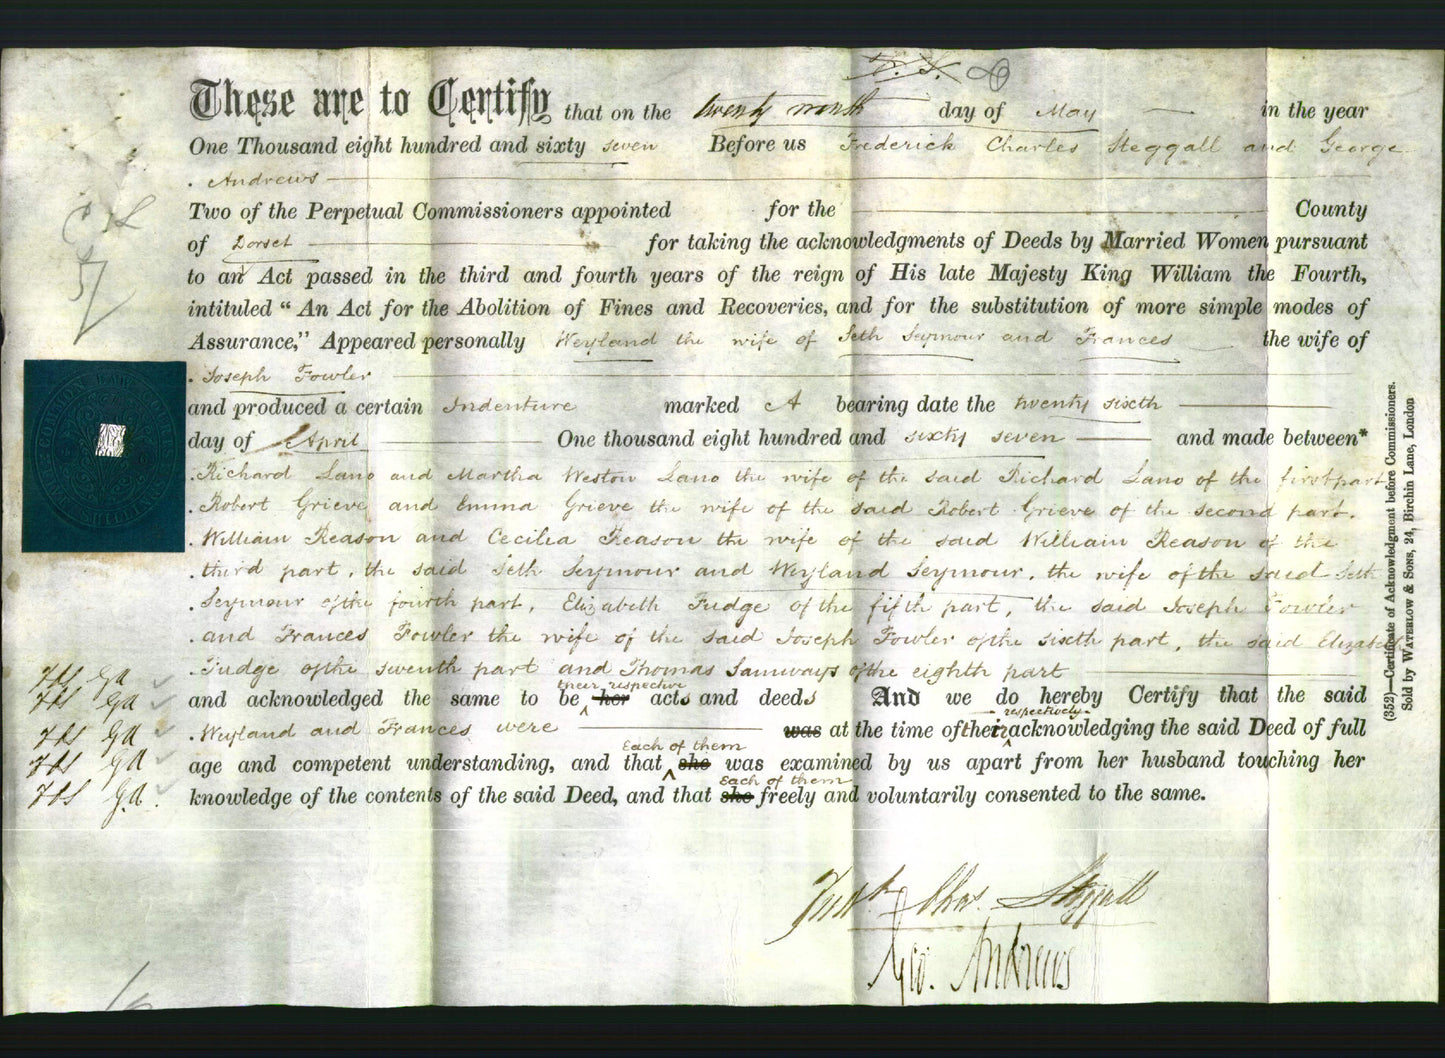 These are to Certify that on the twenty ninth day of May in the year
One Thousand eight hundred and sixty seven Before us Frederick Charles Steggall and George
Andrews
Two of the Perpetual Commissioners appointed for the County
of Dorset for taking the acknowledgments of Deeds by Married Women pursuant
to an Act passed in the third and fourth years of the reign of His late Majesty King William the Fourth,
intituled “ An Act for the Abolition of Fines and Recoveries, and for the substitution of more simple modes of
Assurance,” Appeared personally Weyland the wife of Seth Seymour and Frances the wife of
Joseph Fowler
and produced a certain Indenture marked A bearing date the twenty sixth
day of April One thousand eight hundred and sixty seven and made between*
Richard Lano and Martha Weston Lano the wife of the said Richard Lano of the first part
Robert Grieve and Emma Grieve the wife of the said Robert Grieve of the second part.
William Reason and Cecilia Reason the wife of the said William Reason of the
third part, the said Seth Seymour and Weyland Seymour, the wife of the said Seth
Seymour of the fourth part, Elizabeth Fudge of the fifth part, the said Joseph Fowler
and Frances Fowler the wife of the said Joseph Fowler of the sixth part, the said Elizabeth
Fudge of the seventh part and Thomas Samways of the eighth part
their respective
and acknowledged the same to be her acts and deeds And we do hereby Certify that the said
respectively
Weyland and Frances were was at the time of their acknowledging the said Deed of full
Each of them
age and competent understanding, and that she was examined by us apart from her husband touching her
Each of them
knowledge of the contents of the said Deed, and that she freely and voluntarily consented to the same.
FCS GA
FCS GA
FCS GA
FCS GA
FCS GA
Fredk. Chas. Steggall
Geo. Andrews
(352)—Certificate of Acknowledgment before Commissioners.
Sold by WATERLOW & SONS, 24, Birchin Lane, London